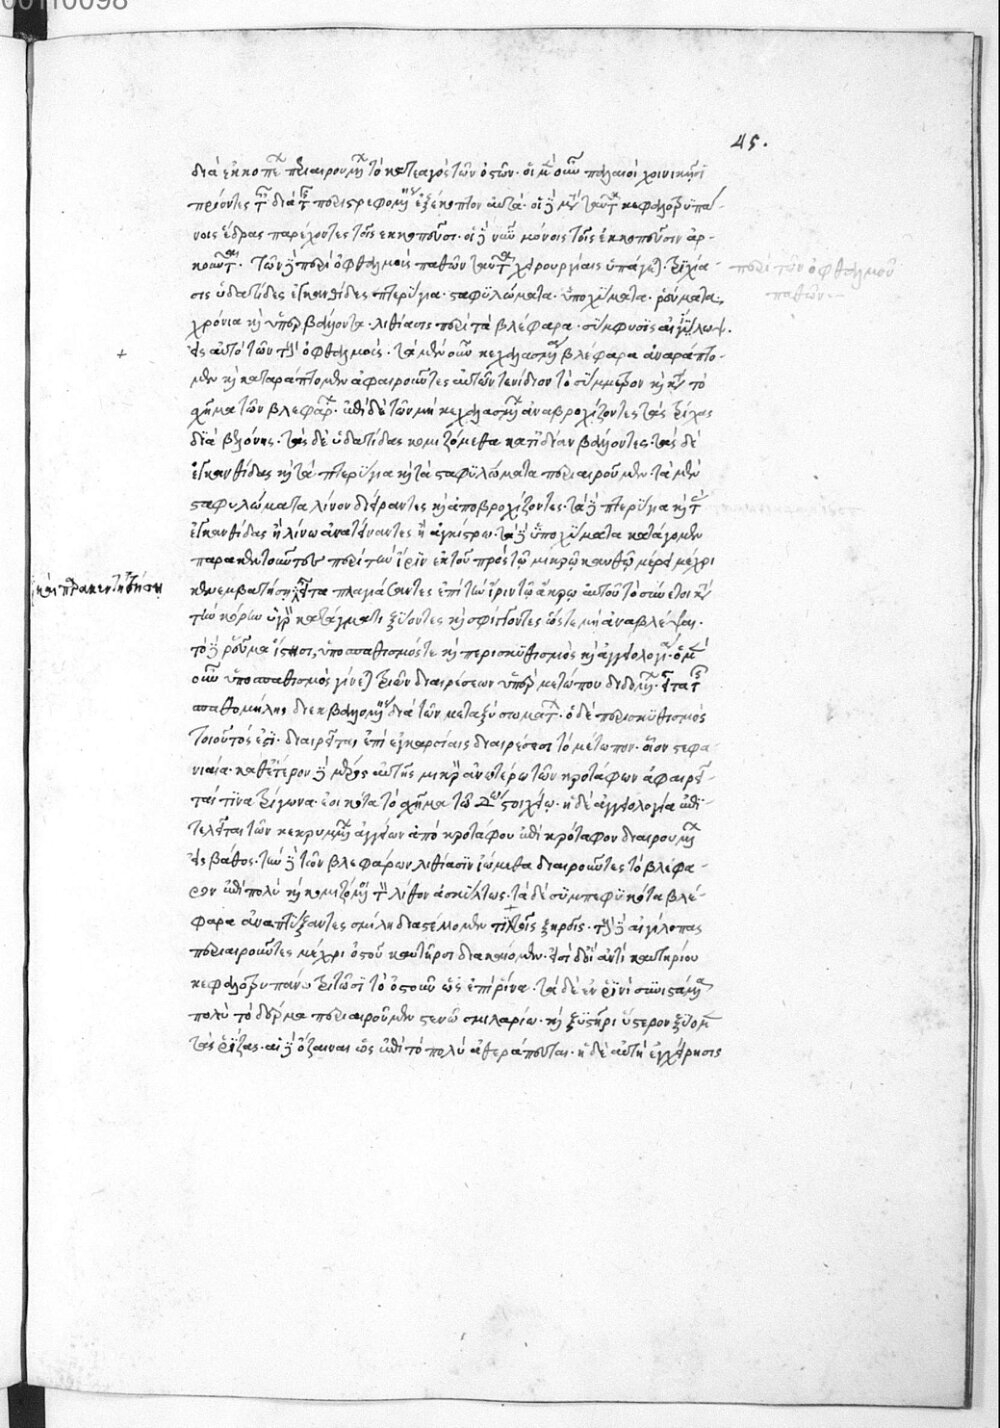 45.
διὰ ἐκκοπέων περιαιρουμένων τὸ κατεαγὸς τῶν ὀστῶν· οἱ μὲν οὖν παλαιοὶ χοινικῆσι
πρίοντες διὰ περιστρεφομένης ἐξέκοπτον αὐτά· οἱ δὲ
νοις ἕδρας παρέχοντες τοῖς ἐκκοπεῦσι· οἱ δὲ νῦν μόνοις τοῖς ἐκκοπεῦσιν ἀρ-
κοῦνται· τῶν δὲ περὶ ὀφθαλμοὺς παθῶν ταῦτα χειρουργίαις ὑπάγεται· τριχία-
σις ὑδατίδες ἐγκανθίδες πτερύγια· σταφυλώματα· ὑποχύματα· ῥεύματα
χρόνια καὶ ὑπερβάλλοντα· λιθίασις περὶ τὰ βλέφαρα· σύμφυσις αἰγίλωψ·
τῶν ὀφθαλμούς· τὰ μὲν οὖν κεχαλασμένα βλέφαρα ἀναράπτο-
μεν καὶ καταράπτομεν ἀφαιροῦντες αὐτῶν τὸ σύμμετρον καὶ τὸ
χῆμα τῶν βλεφάρων· ἐπὶ δὲ τῶν μὴ κεχαλασμένων ἀναβροχίζοντες τὰς τρίχας
διὰ βελόνης· τὰς δὲ ὑδατίδας κομιζόμεθα κατ' ἰδίαν βάλλοντες· τὰς δὲ
ἐγκανθίδας καὶ τὰ πτερύγια καὶ τὰ σταφυλώματα περιαιροῦμεν· τὰ μὲν
σταφυλώματα λίνον διείραντες καὶ ἀποβροχίζοντες· τὰ δὲ πτερύγια καὶ τὰς
ἐγκανθίδας ἢ λίνῳ ἀνατείναντες ἢ ἀγκίστρῳ· τὰ δὲ ὑποχύματα κατάγομεν
παρακεντοῦντες περὶ τὴν ἴριν ἐκ τοῦ πρὸς τῷ μικρῷ κανθῷ μέρους μέχρι
κενεμβατήσῃ εἶτα πλαγιάσαντες ἐπὶ τὴν ἴριν τῷ ἄκρῳ αὐτοῦ τὸ
τὴν κόρην ὑγρὸν κατάγματι ξύοντες καὶ σφίγγοντες ὥστε μὴ ἀναβλέψαι·
τὸ δὲ ῥεῦμα ἵστησι, ὑποσπαθισμός τε καὶ περισκυθισμὸς καὶ ἀγγειολογία· ὁ μὲν
οὖν ὑποσπαθισμὸς γίνεται τριῶν διαιρέσεων ὑπὲρ μετώπου διδομένων· εἶτα τῆς
σπαθομήλης διεκβαλλομένης διὰ τῶν μεταξὺ σωμάτων· ὁ δὲ περισκυθισμὸς
τοιοῦτός ἐστι· διαιρεῖται ἐπὶ ἐγκαρσίαις διαιρέσεσι τὸ μέτωπον· οἷον στεφα-
νιαία· καθ' ἕτερον δὲ μέρος αὐτῆς μικρὸν ἀνωτέρω τῶν κροτάφων ἀφαιρεῖ-
ται τινα τρίγωνα· ἐοικότα τὸ σχῆμα τῷ Δ στοιχείῳ· ἡ δὲ ἀγγειολογία ἐπι-
τελεῖται τῶν κεκρυμμένων ἀγγείων ἀπὸ κροτάφου ἐπὶ κρόταφον διαιρουμένων
εἰς βάθος· τὴν δὲ τῶν βλεφάρων λιθίασιν ἰώμεθα διαιροῦντες τὸ βλέφα-
ρον ἐπὶ πολὺ καὶ κομιζόμενοι τὸν λίθον ἀσκύλτως· τὰ δὲ συμπεφυκότα βλέ-
φαρα ἀναπτύξαντες σμίλῃ διαστέλλομεν ξηροῖς· τοὺς δὲ αἰγίλοπας
περιαιροῦντες μέχρι ὀστοῦ καυτῆρσι διακαίομεν· εἰσὶ δὲ οἳ ἀντὶ καυτηρίου
κεφαλοτρυπάνῳ τιτρῶσι τὸ ὀστοῦν ὡς ἐπὶ ῥῖνα· τὰ δὲ ἐν ῥινὶ συνιστάμενα
πολὺ τὸ δέρμα περιαιροῦμεν στενῷ σμιλαρίῳ· καὶ ξυστῆρι ὕστερον ξύομεν
τὰς ῥίζας· αἱ δὲ ὄζαιναι ὡς ἐπὶ τὸ πολὺ ἀθεράπευται· ἡ δὲ αὐτὴ ἐγχείρησις
περὶ τῶν ὀφθαλμοῦ
παθῶν